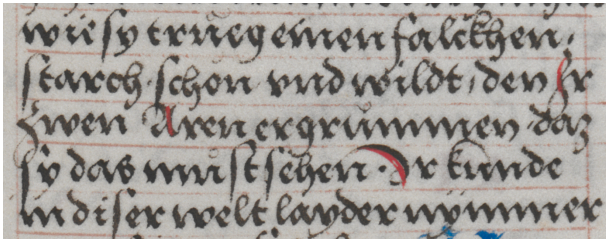 wie sy trueg einen falckhen,
starch schon vnd wildt, den Ir
zwen Aren ergrummen daz
sy das muest sehen Ir kunde
in diser welt layder nymmer